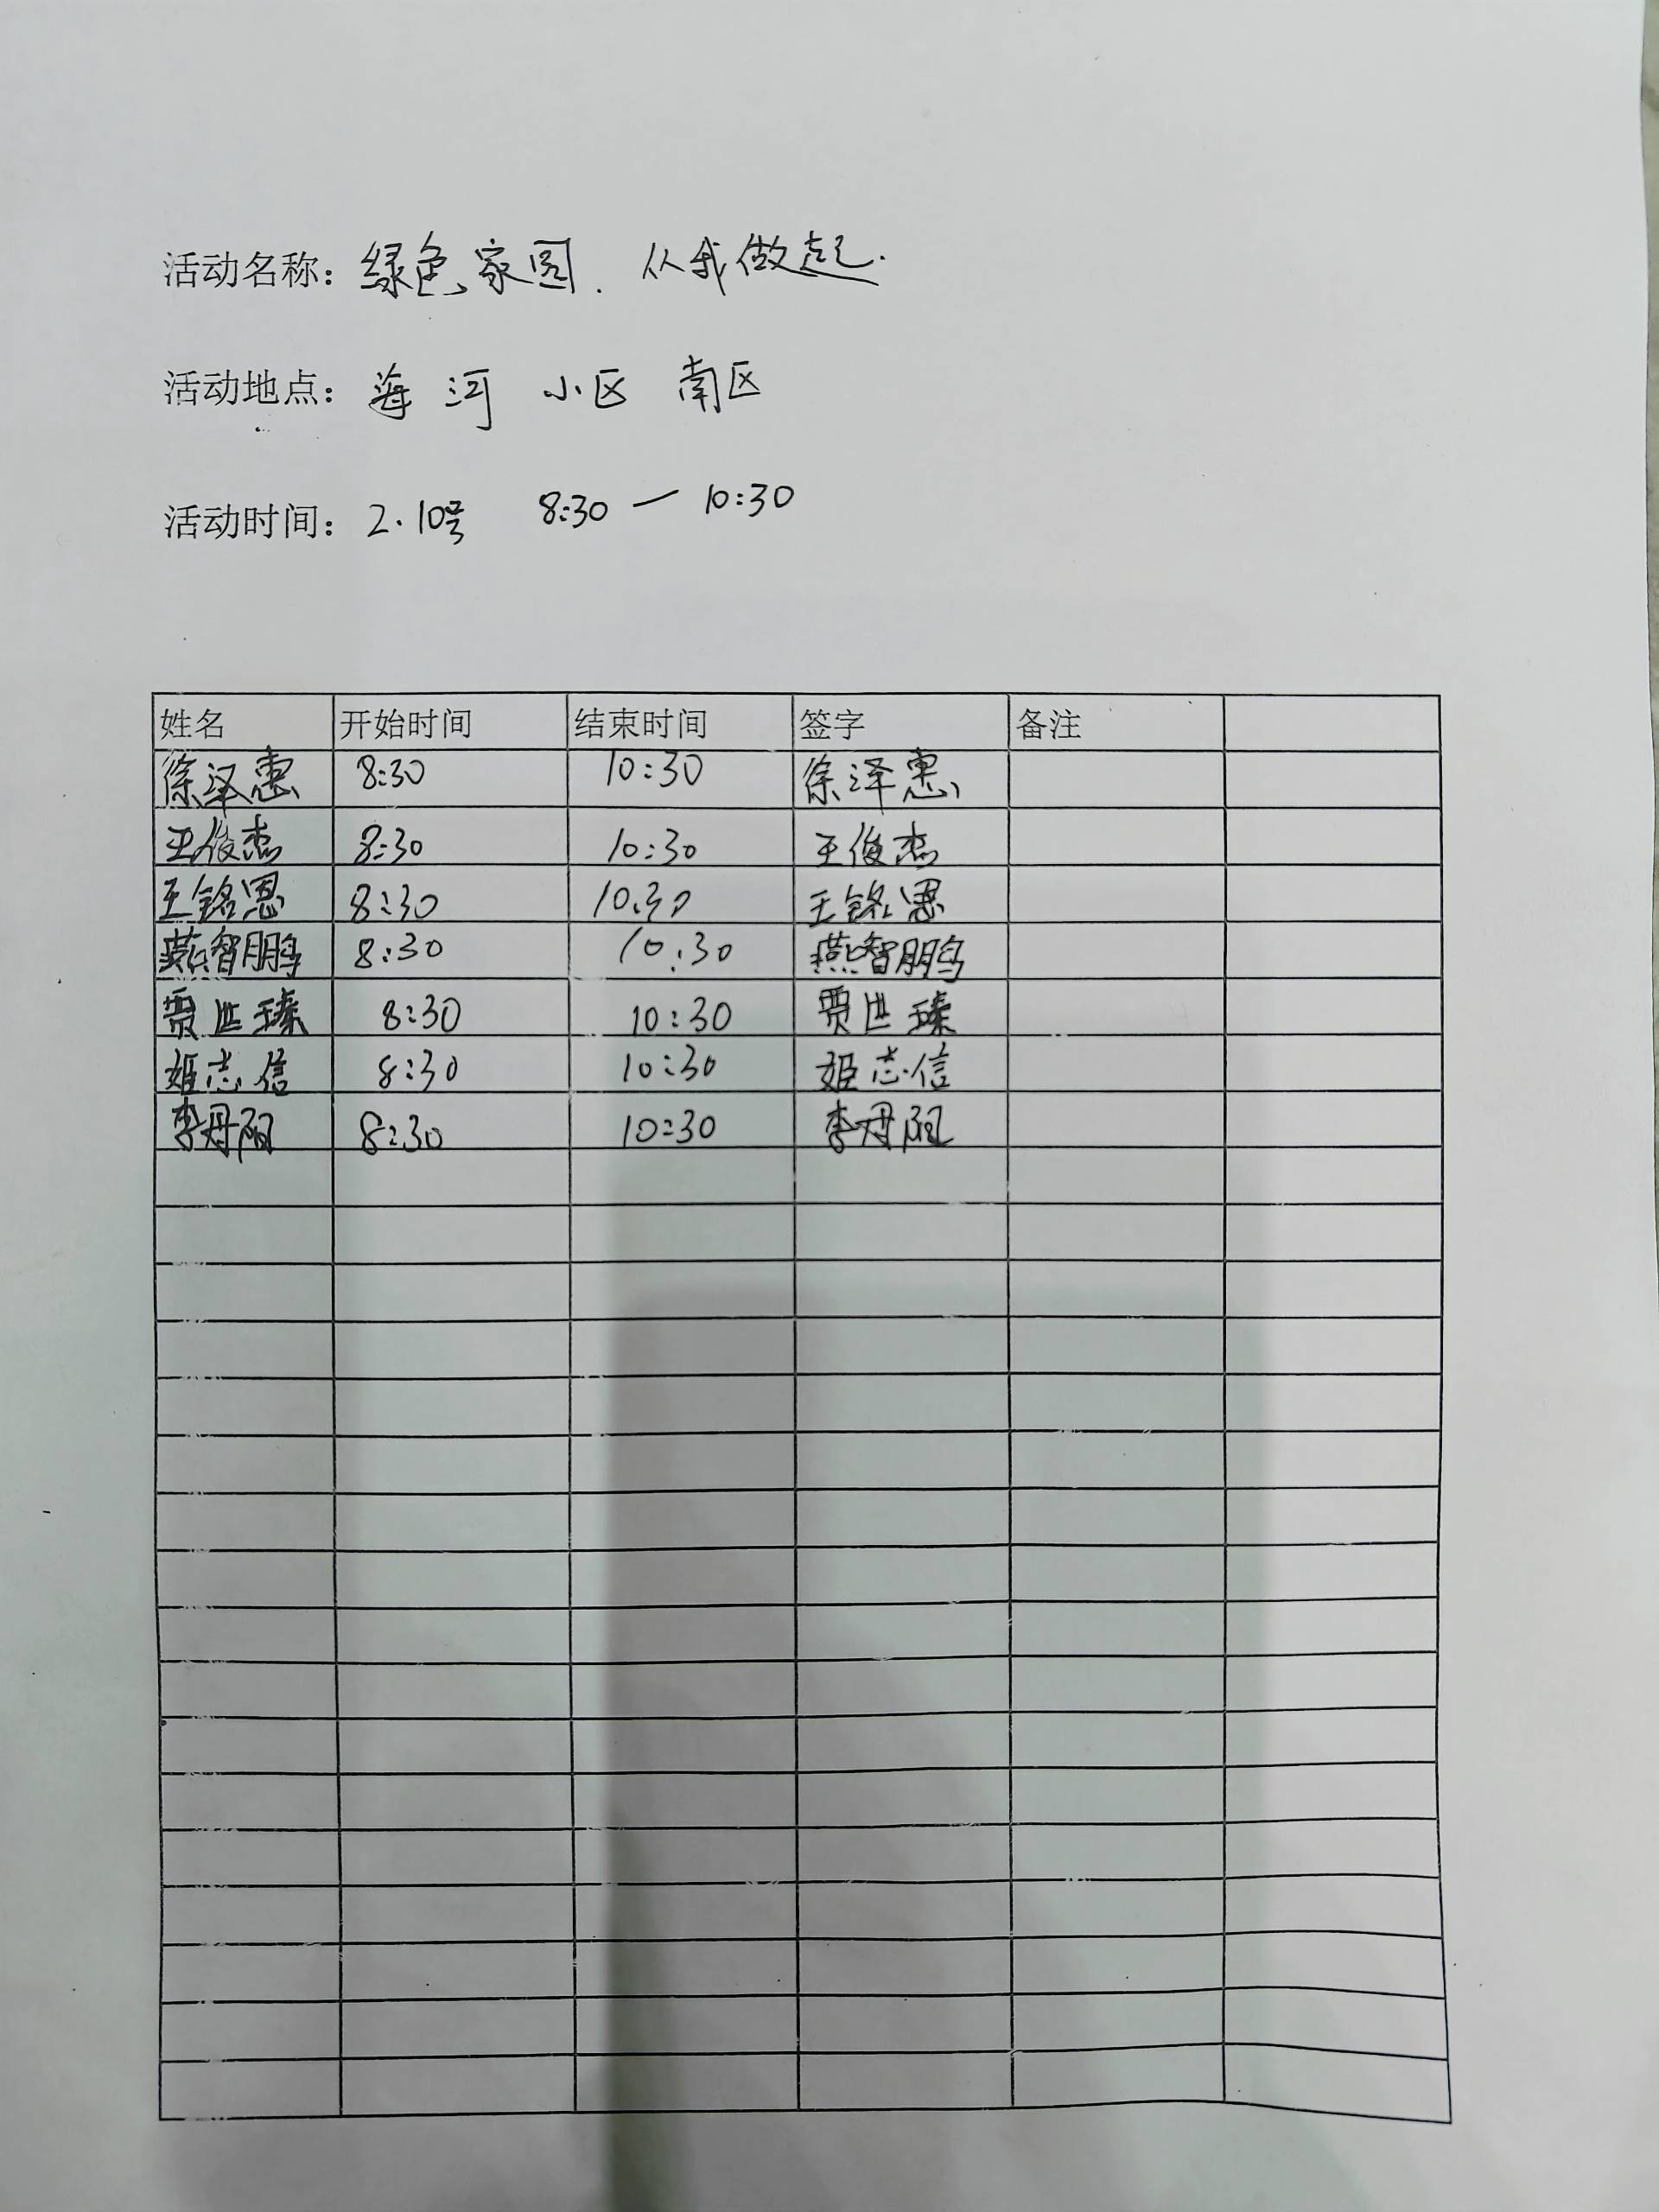 活动名称：绿色家园．从我做起．
活动地点：海河 小区 南区
活动时间：2.10号 8:30 — 10:30
姓名 开始时间 结束时间 签字 备注
徐泽惠 8:30 10:30 徐泽惠
王俊杰 8:30 10:30 王俊杰
王铭恩 8:30 10:30 王铭恩
燕智鹏 8:30 10:30 燕智鹏
贾世臻 8:30 10:30 贾世臻
姬志信 8:30 10:30 姬志信
李丹阳 8:30 10:30 李丹阳